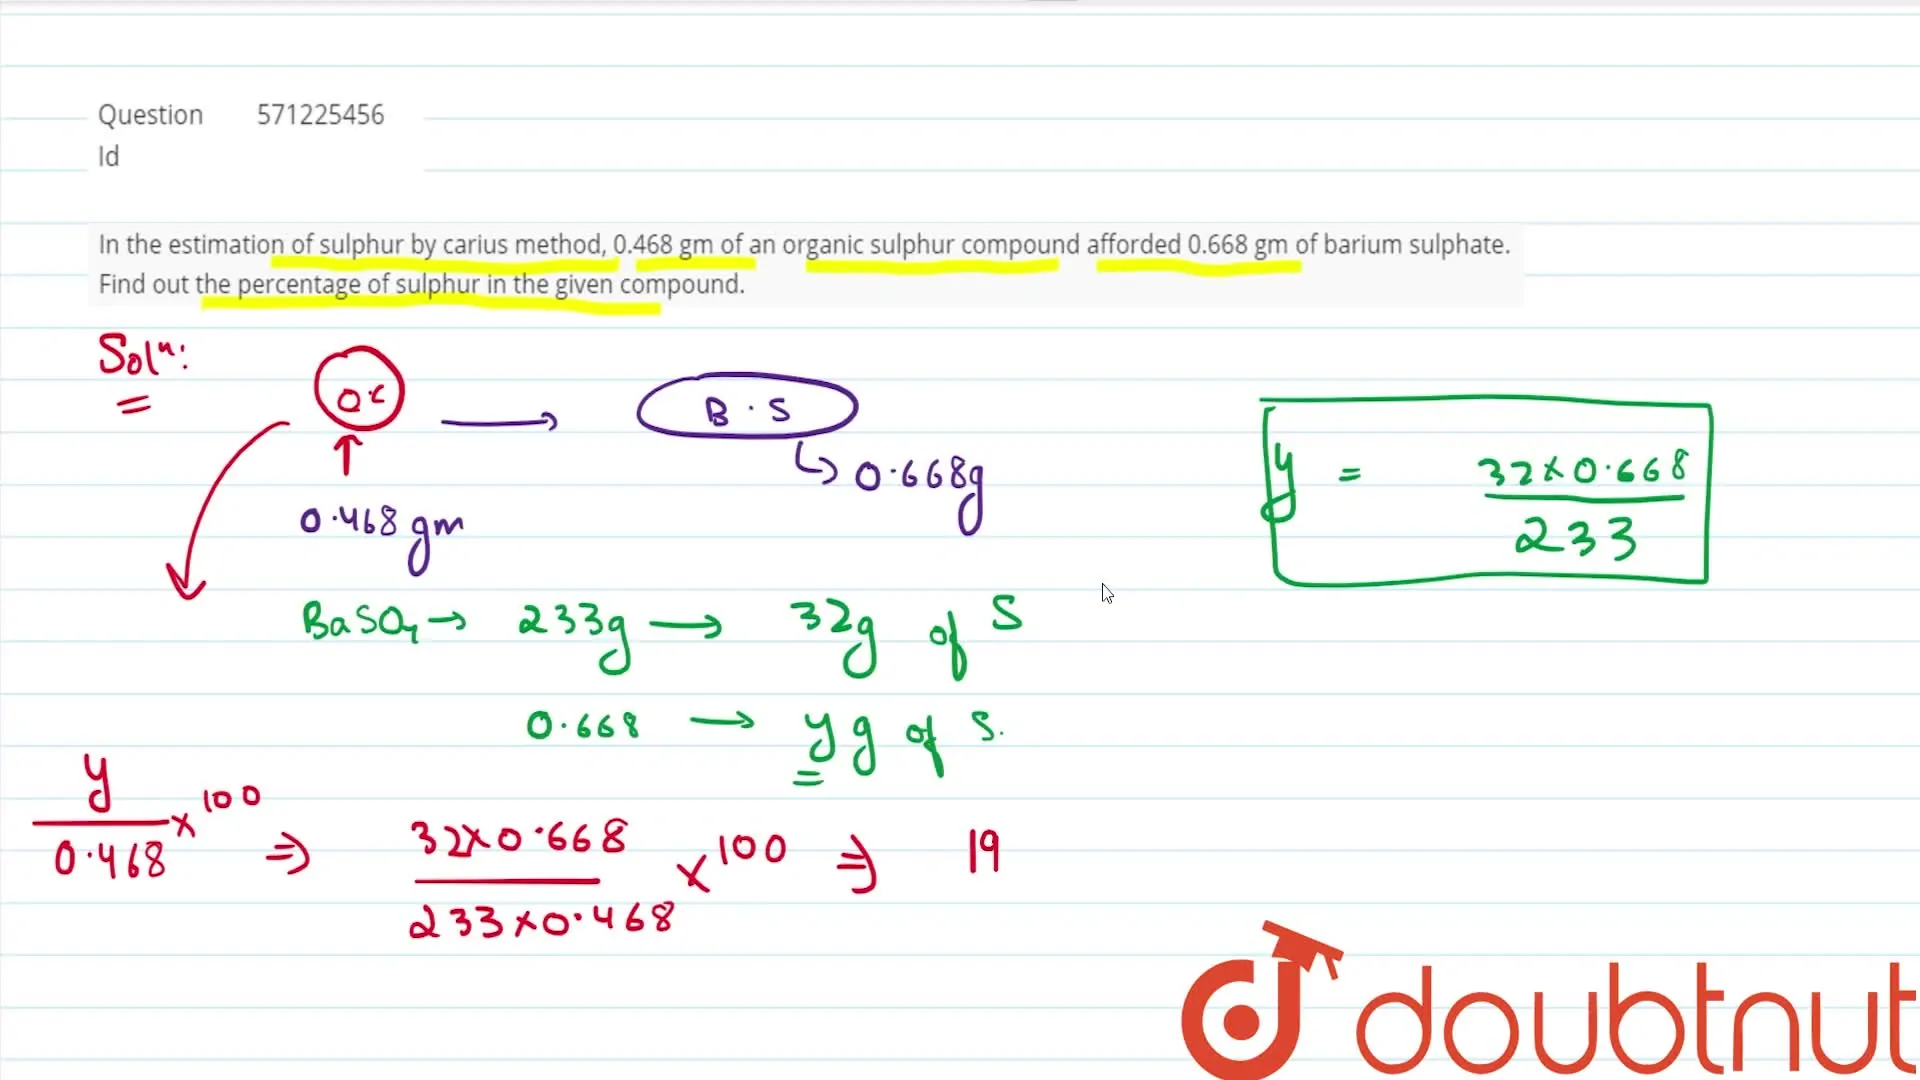 Question 571225456
Id
In the estimation of sulphur by carius method, 0.468 gm of an organic sulphur compound afforded 0.668 gm of barium sulphate.
Find out the percentage of sulphur in the given compound.
Solⁿ:
=
O.C → B.S
↳ 0.668g
↑
0.468 gm
y = 32×0.668
233
BaSO4 → 233g → 32g of S
0.668 → y g of S.
y/0.468 ×100 ⇒ 32×0.668/233×0.468 ×100 ⇒ 19
doubtnut